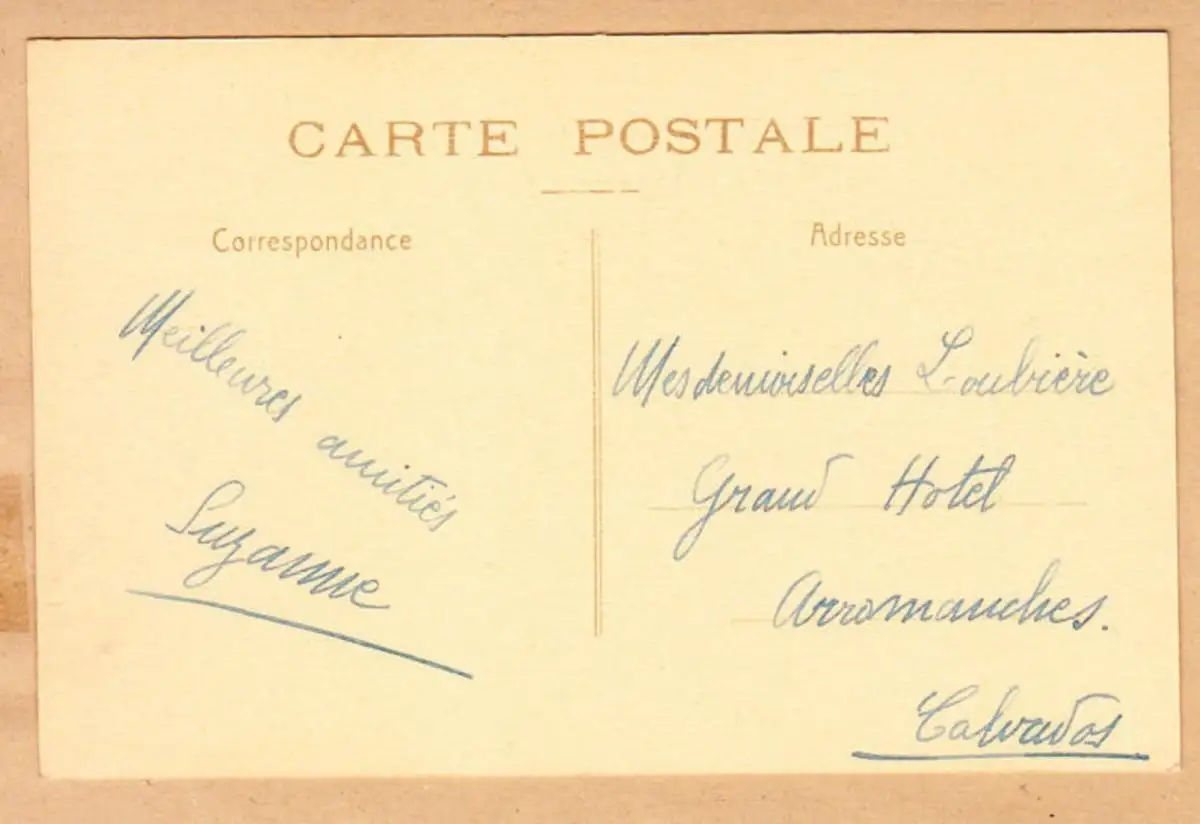 CARTE POSTALE
Correspondance
Meilleures amitiés
Suzanne
Adresse
Mesdemoiselles Loubière
Grand Hotel
Arromanches.
Calvados